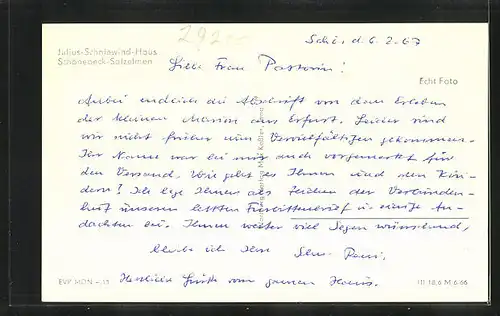 292
Schö. d. 6. 2. 67
Julius-Schniewind-Haus
Schönebeck-Salzelmen
Liebe Frau Pastorin!
Echt Foto
Anbei endlich die Abschrift von dem Erleben
der kleinen Marion aus Erfurt. Leider sind
wir nicht früher zum Vervielfältigen gekommen.
Ihr Name war bei mir auch vorgemerkt für
den Versand. Wie geht es Ihnen und den Kin-
dern? Ich lege Ihnen als Zeichen der Verbunden-
heit unseren letzten Fürbittenbrief u. einige An-
dachten bei. Ihnen weiter viel Segen wünschend,
bleibe ich Ihre Schw.
Herzliche Grüße vom ganzen Haus.
EVP MDN
III 18 6 M 6/66